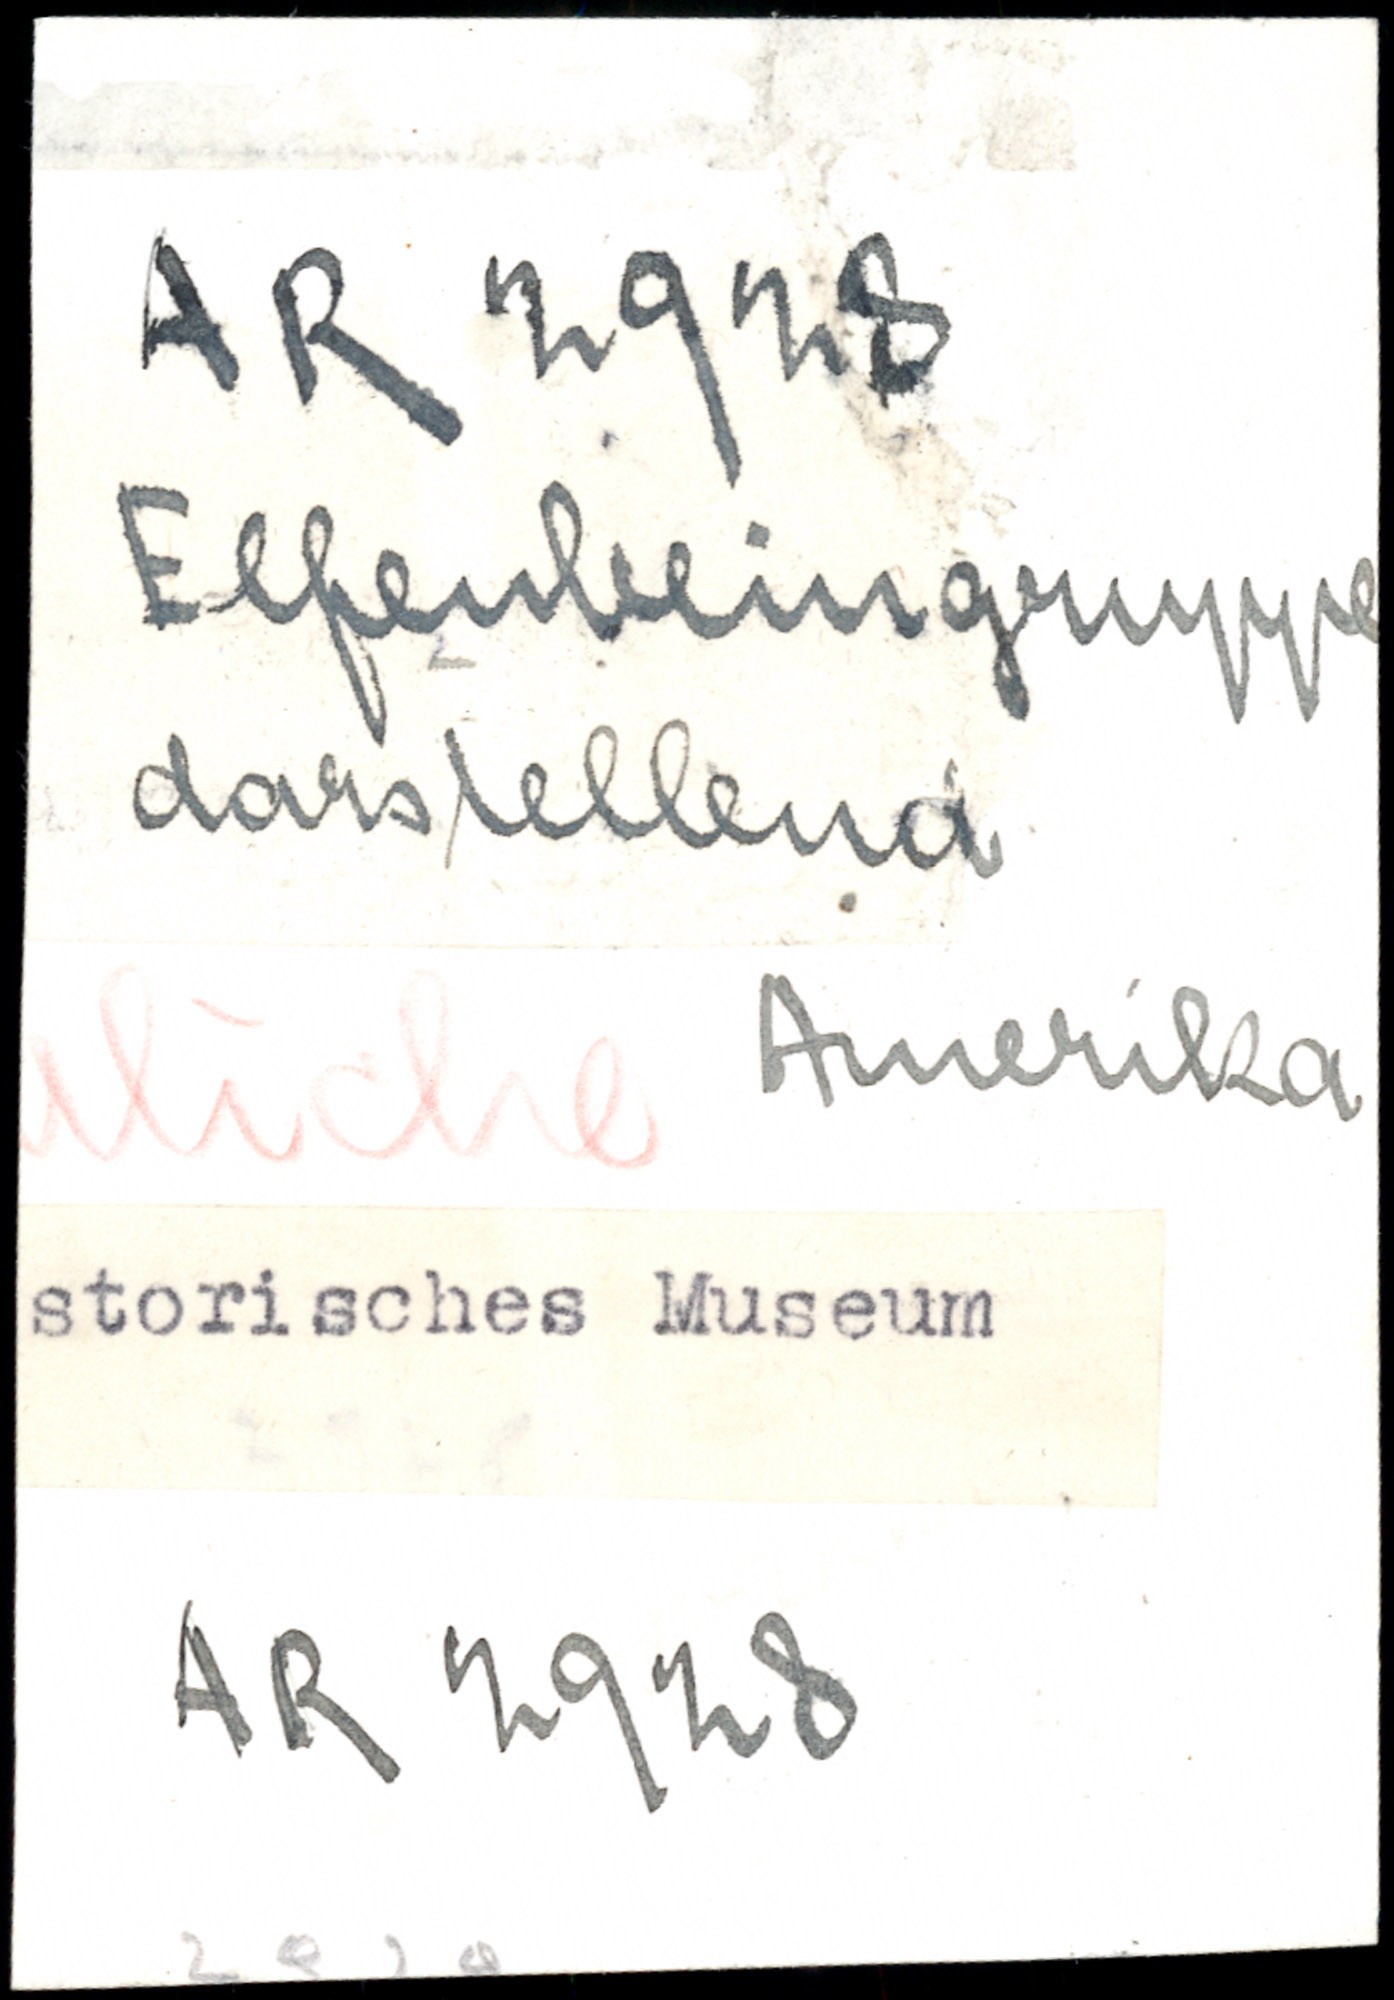 AR 2928
Elfenbeingruppe
darstellend
liche Amerika
storisches Museum
AR 2928